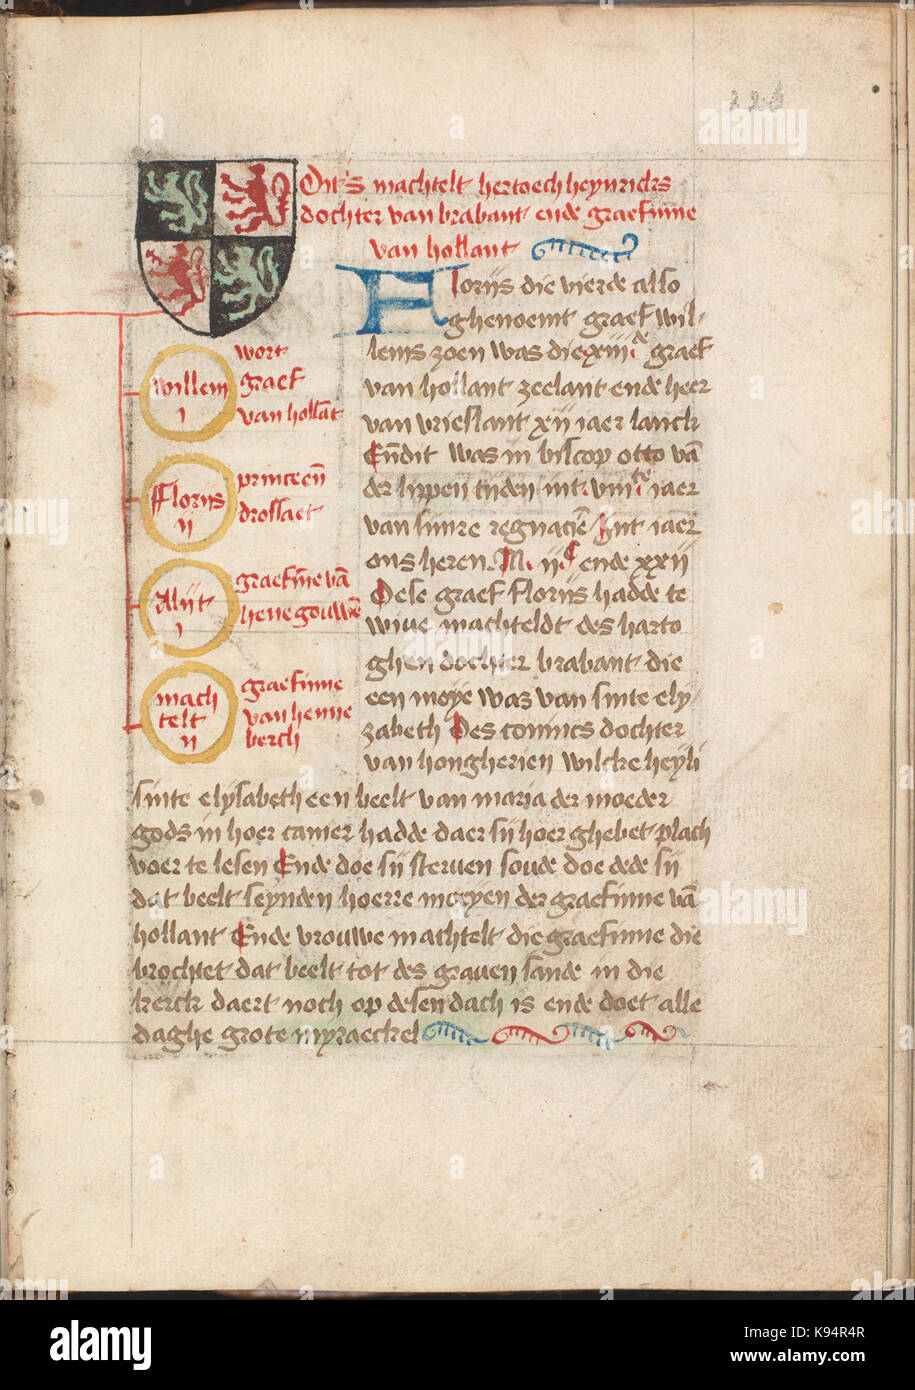 226
Dit's machtelt hertoech heynricks
dochter van brabant ende graefinne
van hollant
Floriis die vierde also
ghenoemt graef wil-
lems zoen was die xiiii de graef
van hollant zeelant ende heer
van vrieslant xij iaer lanck
Endit was in biscop otto vā
der lippen tijden int viii te iaer
van sinre regnaciē Int iaer
ons heren M ij c ende xxij
Dese graef floriis hadde te
wive machteldt des harto
ghen dochter brabant die
een moye was van sinte ely-
zabeth Des conincs dochter
van hongherien wilcke heyli
sinte elysabeth een beelt van maria der moeder
gods in hoer camer hadde daer sij hoer ghebet plach
voer te lesen Ende doe sij sterven soude doe dede sij
dat beelt seynden hoerre moeyen der graefinne vā
hollant Ende vrouwe machtelt die graefinne die
brochtet dat beelt tot des graven sande in die
kerck daert noch op desen dach is ende doet alle
daghe grote myraeckel
willem
i
wort
graef
van hollāt
Floriis
ii
prince eñ
drossaet
Alijt
i
graefīne vā
henegouwē
mach
telt
ii
graefinne
van henne
berch
alamy
Image ID: K94R4R
www.alamy.com